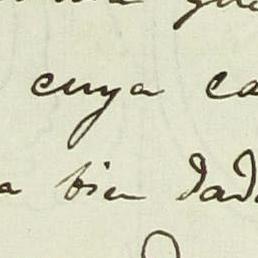 cuya ca
a bien dad